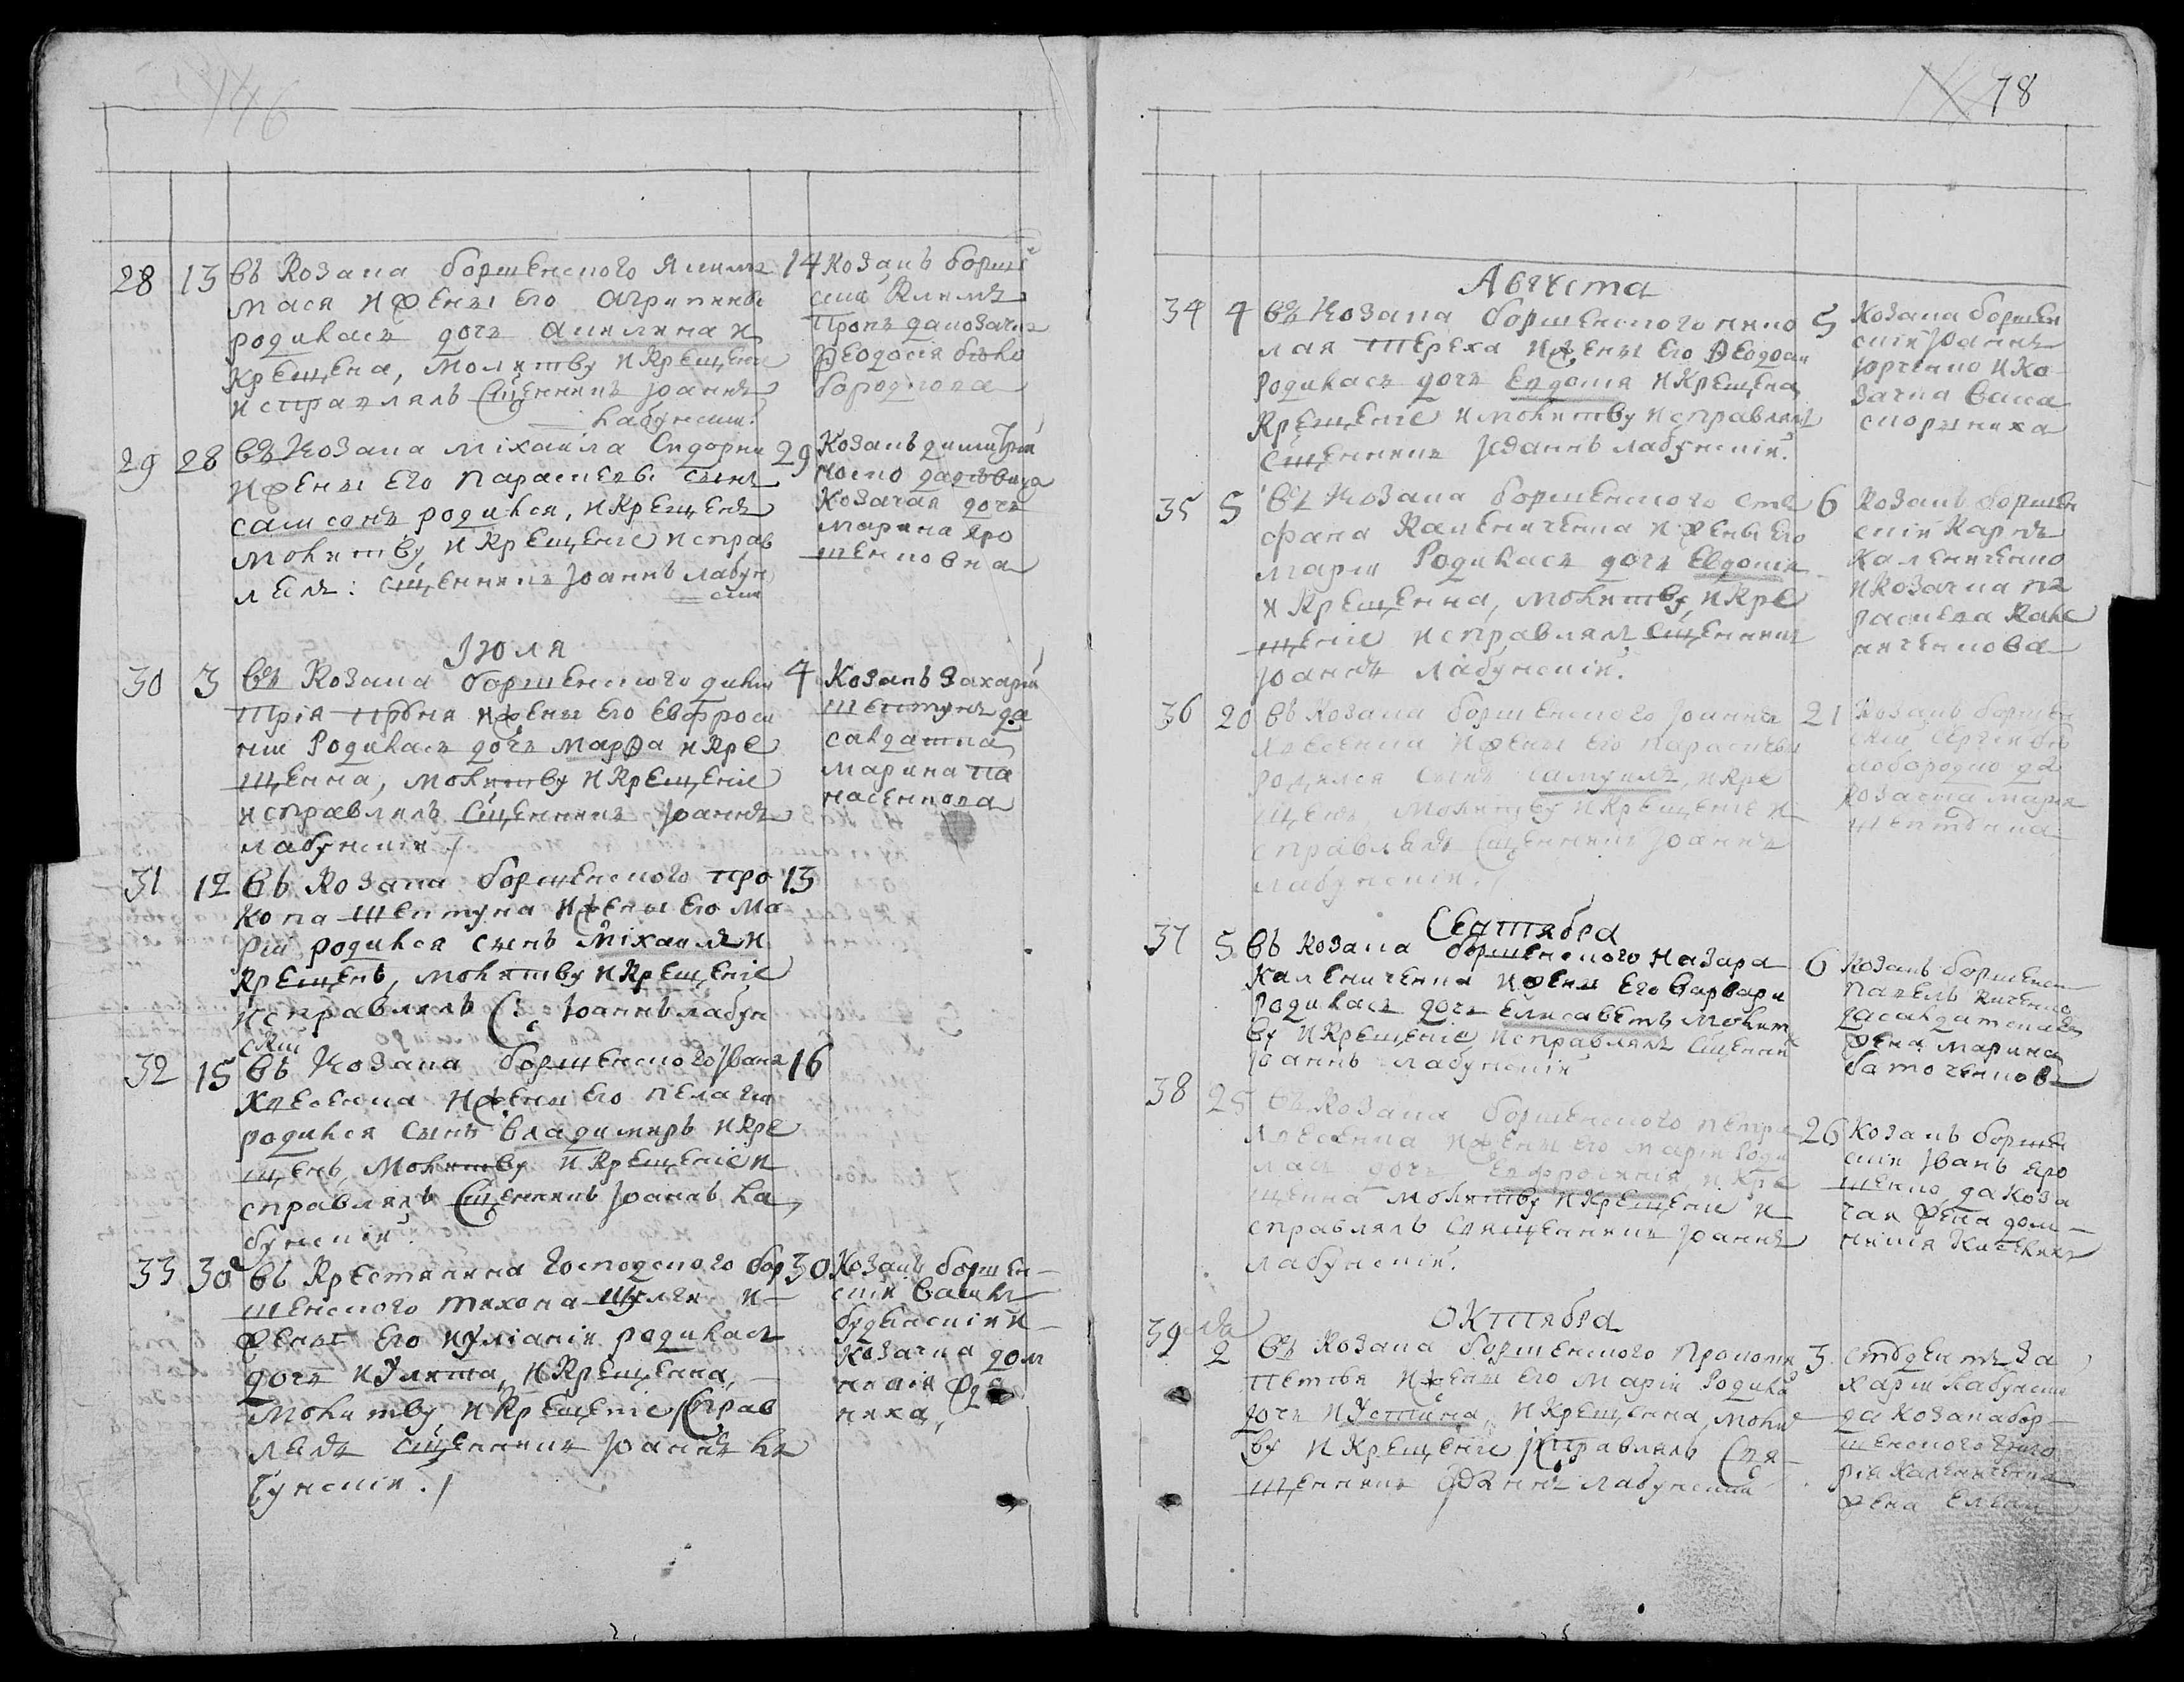 146
28 13 въ Козака боршенского Яким
мася и жены его Агрипины
родилась дочь Акилина и
крещена, молитву и крещение
исправлялъ Сщенникъ Іоаннъ
Лабунскій
14 Козакъ борше
скій Климъ
да козачка
Ѳеодосія бѣло
бородкова
29 28 въ Козака Міхаила Сидорки
и жены его Параскеви сынъ
Самсонъ родился, и крещенъ
молитву и крещеніе исправ
лялъ: Сщенникъ Іоаннъ Лабун
скій
29 Козакъ Димитрій
Козачая дочь
Марина Яро
шенковна
Іюля
30 3 въ Козака боршенского Дими
трія и жены его Евфроси
ніи родилась дочь Марѳа и кре
щенна, молитву и крещеніе
исправлялъ Сщенникъ Іоаннъ
Лабунскій
4 Козакъ Захарій
Шептунъ да
салдатка
Марина Па
насенкова
31 12 въ Козака боршенского Про
копа Шептуна и жены его Ма
ріи родился сынъ Міхаилъ и
крещенъ, молитву и крещеніе
исправлялъ С: Іоаннъ Лабун
скій
13
32 15 въ Козака боршенского Ивана
и жены его Пелагіи
родился сынъ Владимиръ и кре
щенъ, молитву и крещеніе и
справлялъ Сщенникъ Іоаннъ Ла
бунскій.
16
33 30 въ Крестянина господского бор
шенского Тихона Шуляк и
жены его Иуліаніи родилась
дочь Иулита, и крещенна,
молитву и крещеніе справ
лялъ Сщенникъ Іоаннъ Ла
бунскій.
30 Козакъ боршен
скій Василь
и
Козачка дом
никія
ниха,
78
Августа
34 4 въ Козака боршенского Нико
лая Тереха и жены его Ѳеодосіи
родилась дочь Евдокія и крещена,
крещеніе и молитву исправлялъ
Сщенникъ Іоаннъ Лабунскій.
5 Козака боршен
скій Іоаннъ
Юрченко и Ко
зачка Васса
скорыниха
35 5 въ Козака боршенского Сте
фана Калениченка и жены его
Маріи родилась дочь Евдокія
и крещенна, молитву и кре
щеніе исправлялъ Сщенникъ
Іоаннъ Лабунскій.
6 Козакъ боршен
скій Карпъ
Калениченко
и Козачка Па
раскева Кале
ниченкова
36 20 въ Козака боршенского Іоанна
и жены его Параскевы
родился сынъ Самуилъ, и кре
щенъ молитву и крещеніе и
справлялъ Сщенникъ Іоаннъ
Лабунскій.
21 Козакъ боршен
скій Сергій бѣ
лобородко да
Козачка Марія
Шептунка
Сентября
37 5 въ Козака боршенского Назара
Каленичен­ка и жены его Варвари
родилась дочь Елисаветъ молит
ву и крещеніе исправлялъ Сщенни
Іоаннъ Лабунскій
6 Козакъ боршенс
Павелъ
да салдатская
жена Марина
38 25 въ Козака боршенского Петра
и жены его Маріи роди
лась дочь Евфросинія, и кре
щенна молитву и крещеніе и
справлялъ Священникъ Іоаннъ
Лабунскій.
26 Козакъ боршен
скій Иванъ Яро
шенко, да Коза
чая жена дом
никія
Октября
39 2 въ Козака боршенского Прокопа
и жены его Маріи родила
дочь Иустина, и крещенна, молит
ву и крещеніе исправлялъ Свя
щенникъ Іоаннъ Лабунскій
3 студентъ За
харій Лабунскій
да Козака бор
шенского Григо
рія Каленичен­ка
жена Елена